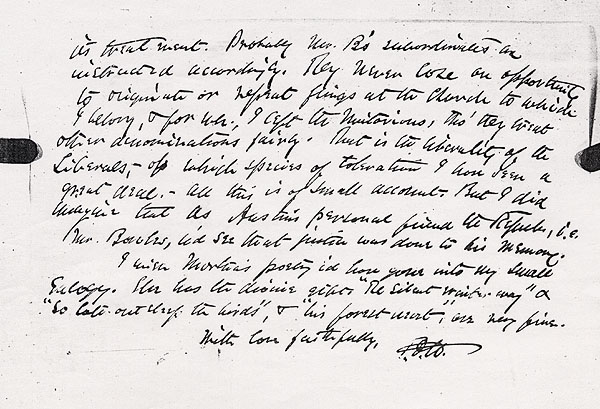 its treatment. Probably Mr. B's subordinates are
instructed accordingly. They never lose an opportunity
to originate or repeat flings at the Church to which
I belong, & for wh., I left the Unitarians; tho' they treat
other denominations fairly. That is the liberality of the
Liberals, - of which species of toleration I have seen a
great deal. - All this is of small account. But I did
imagine that as Austin's personal friend the Repub., i.e.
Mr. Bowles, wd see that justice was done to his memory.
I wish Martha's poetry cd have gone into my small
Eulogy. She has the divine gift: "The silent winter-way" &
"So late out-sleep the birds", & "his forest nest", are very fine.
With love faithfully,